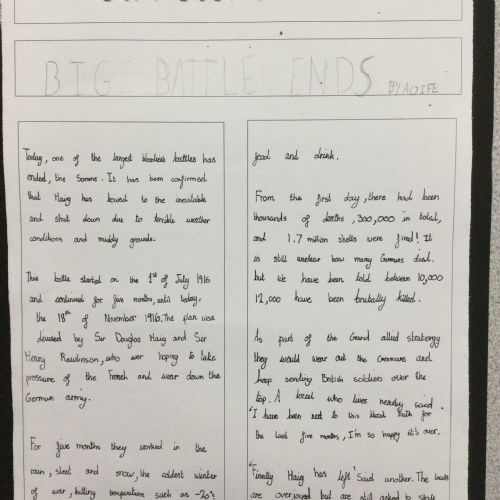 BIG BATTLE ENDS
BY AOIFE
Today, one of the largest bloodiest battles has
ended, the Somme. It has been confirmed
that Haig has bowed to the inevitable
and shut down due to terrible weather
conditions and muddy grounds.
This battle started on the 1st of July 1916
and continued for five months, until today.
the 18th of November 1916. The plan was
devised by Sir Douglas Haig and Sir
Henry Rawlinson, who wer hoping to take
pressure of the French and wear down the
German army.
For five months they worked in the
rain, sleet and snow, the coldest winter
of war, hitting temperatures such as -20°c
food and drink.
From the first day, there had been
thousands of deaths, 300,000 in total,
and 1.7 million shells were fired! It
is still unclear how many Germans died.
but we have been told between 10,000
12,000 have been brutally killed.
As part of the Grand allied stratergy
they would wear out the Germans and
keep sending British soldiers over the
top. A local who lives nearby said
"I have been next to this blood bath for
the last five months, I'm so happy it's over.
"Finally Haig has left" said another. The locals
are overjoyed but are still asked to stay